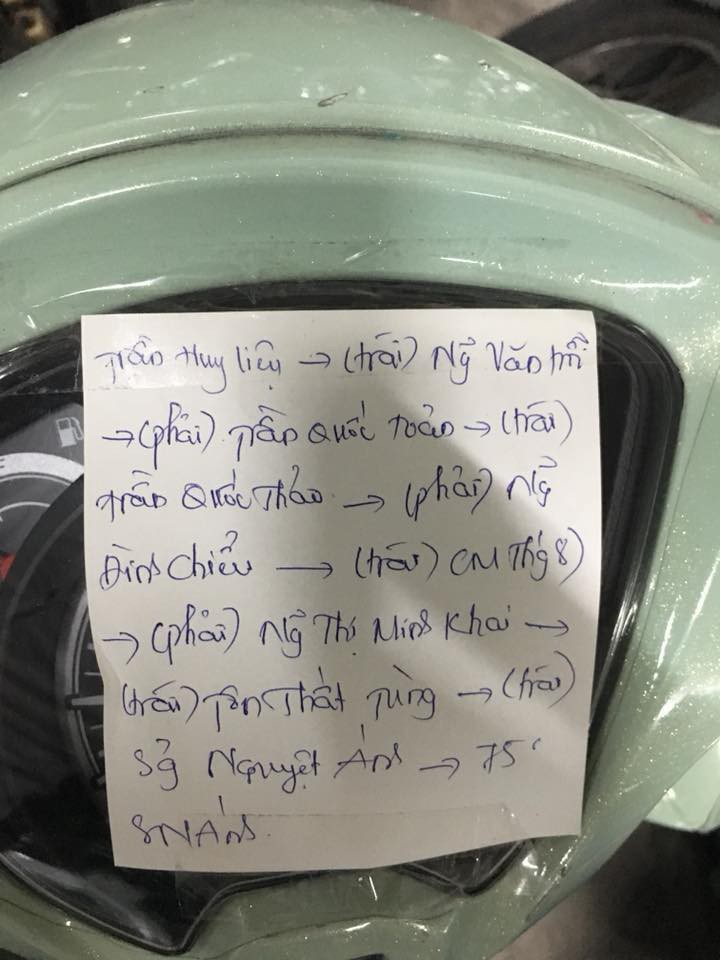 Trần Huy Liệu → (trái) Ng̃ Văn Trỗi
→ (phải) Trần Quốc Toản → (trái)
Trần Quốc Thảo → (phải) Ng̃
Đình Chiểu → (trái) CM Thg 8)
→ (phải) Ng̃ Thị Minh Khai →
(trái) Tôn Thất Tùng → (trái)
Sg Nguyệt Ánh → 75
SN Ánh.